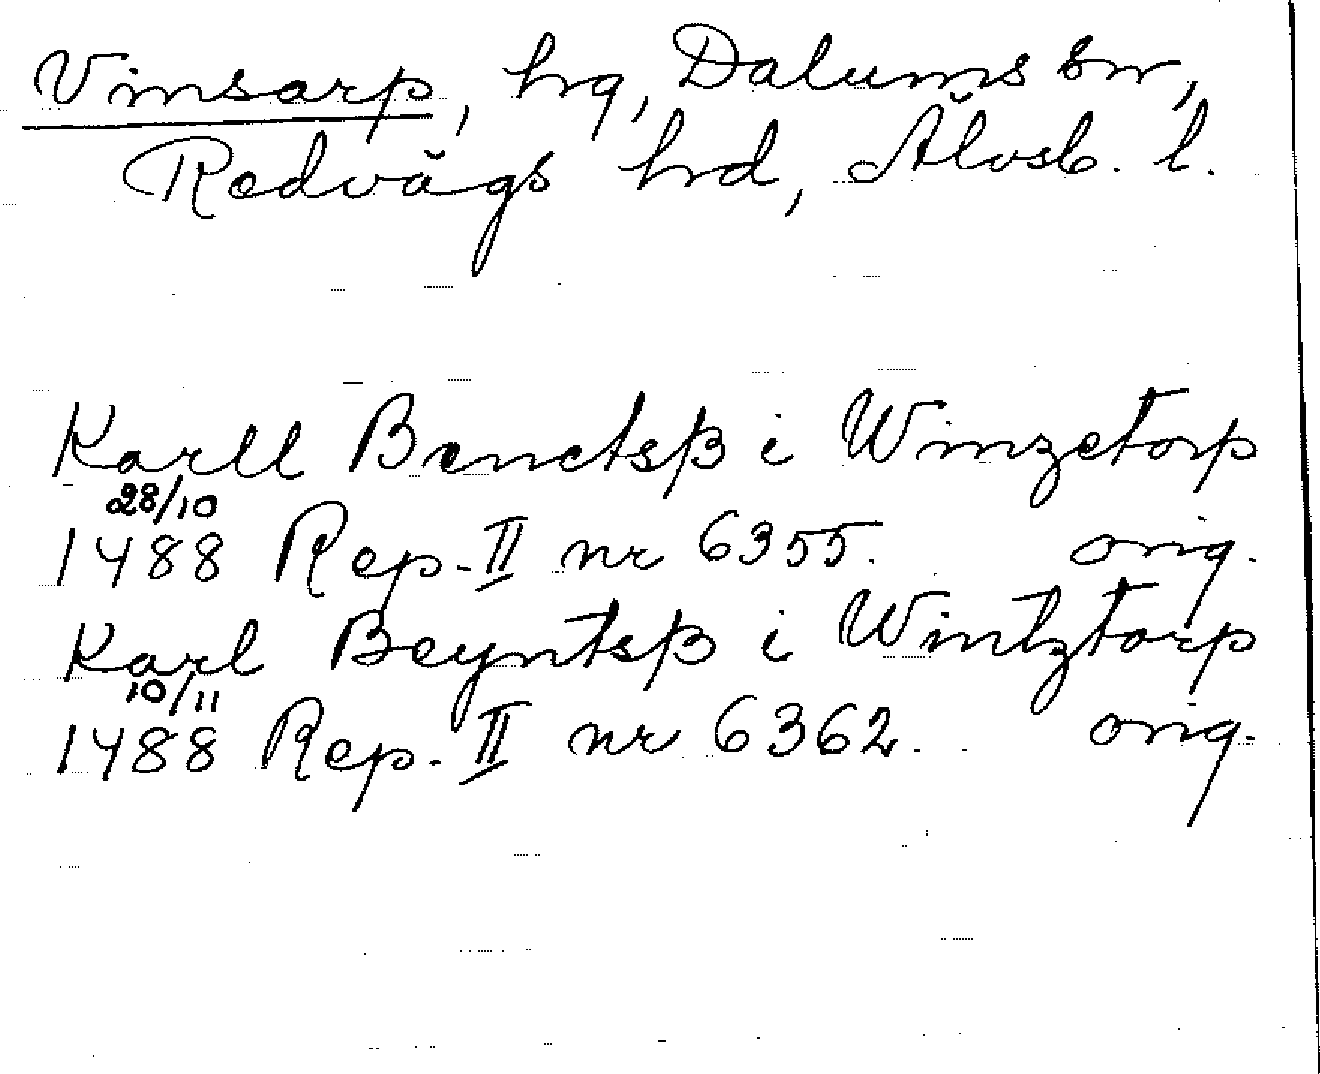 Vinsarp, hg, Dalums sn,
Redvägs hrd, Älvsb. l.
Karll Benctsß i Winzetorp
28/10
1488 Rep. II nr 6355. orig.
Karl Beyntsß i Wintztorp
10/11
1488 Rep. II nr 6362. orig.